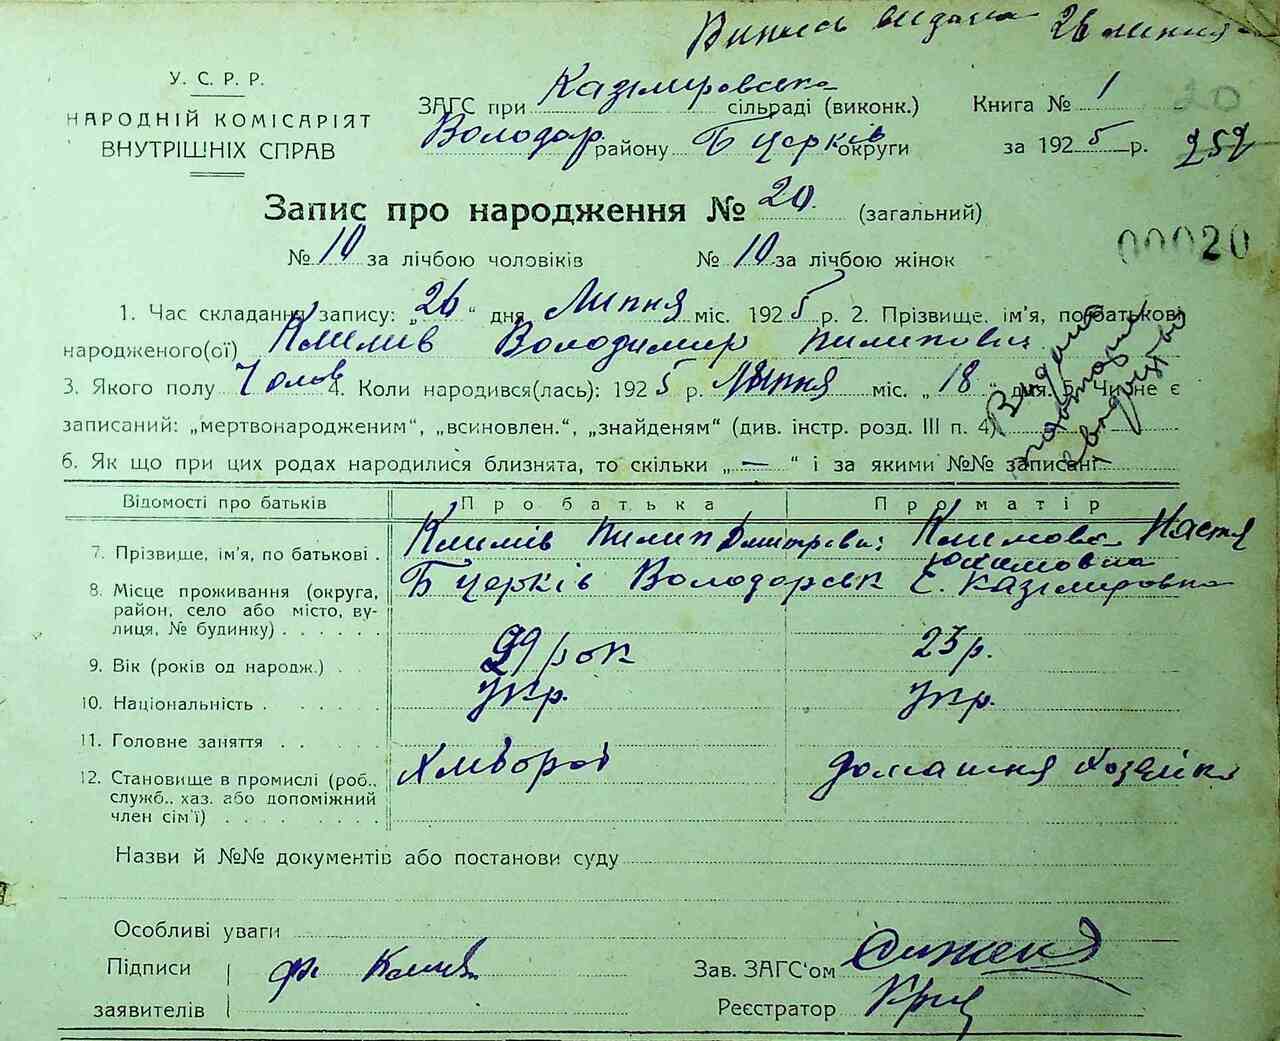 Випись видана 26 липня
У. С. Р. Р.
НАРОДНІЙ КОМІСАРІЯТ
ВНУТРІШНІХ СПРАВ
ЗАГС при Казіміровська сільраді (виконк.) Книга № 1 20
Володар району Б Церків округи за 1925 р. 252
Запис про народження № 20. (загальний)
00020
№ 10 за лічбою чоловіків № 10 за лічбою жінок
1. Час складання запису: „26“ дня Липня міс. 1925 р. 2. Прізвище, ім'я, по батькові
народженого(ої) Климів Володимир Пилипович
3. Якого полу Чолов 4. Коли народився(лась): 1925 р. Липня міс. „18“ дня. 5. Чи не є
записаний: „мертвонародженим“, „всиновлен.“, „знайденям“ (див. інстр. розд. III п. 4)
Видано повторне свидоцтво
6. Як що при цих родах народилися близнята, то скільки „—“ і за якими №№ записані —
Відомості про батьків Про батька Про матір
7. Прізвище, ім'я, по батькові . Климів Пилип Дмитрови: Климова Настя
8. Місце проживання (округа, район, село або місто, вулиця, № будинку) . . . . . . Б Церків Володарськ С. Казіміровка
9. Вік (років од народж.) . 29 рок 23 р.
10. Національність . . . . . . Укр. Укр.
11. Головне заняття . . . . . Хлібороб домашня хозяйка
12. Становище в промислі (роб., служб., хаз. або допоміжний член сім'ї) . . . . . . . .
Назви й №№ документів або постанови суду
Особливі уваги
Підписи
заявителів
Зав. ЗАГС'ом
Реєстратор